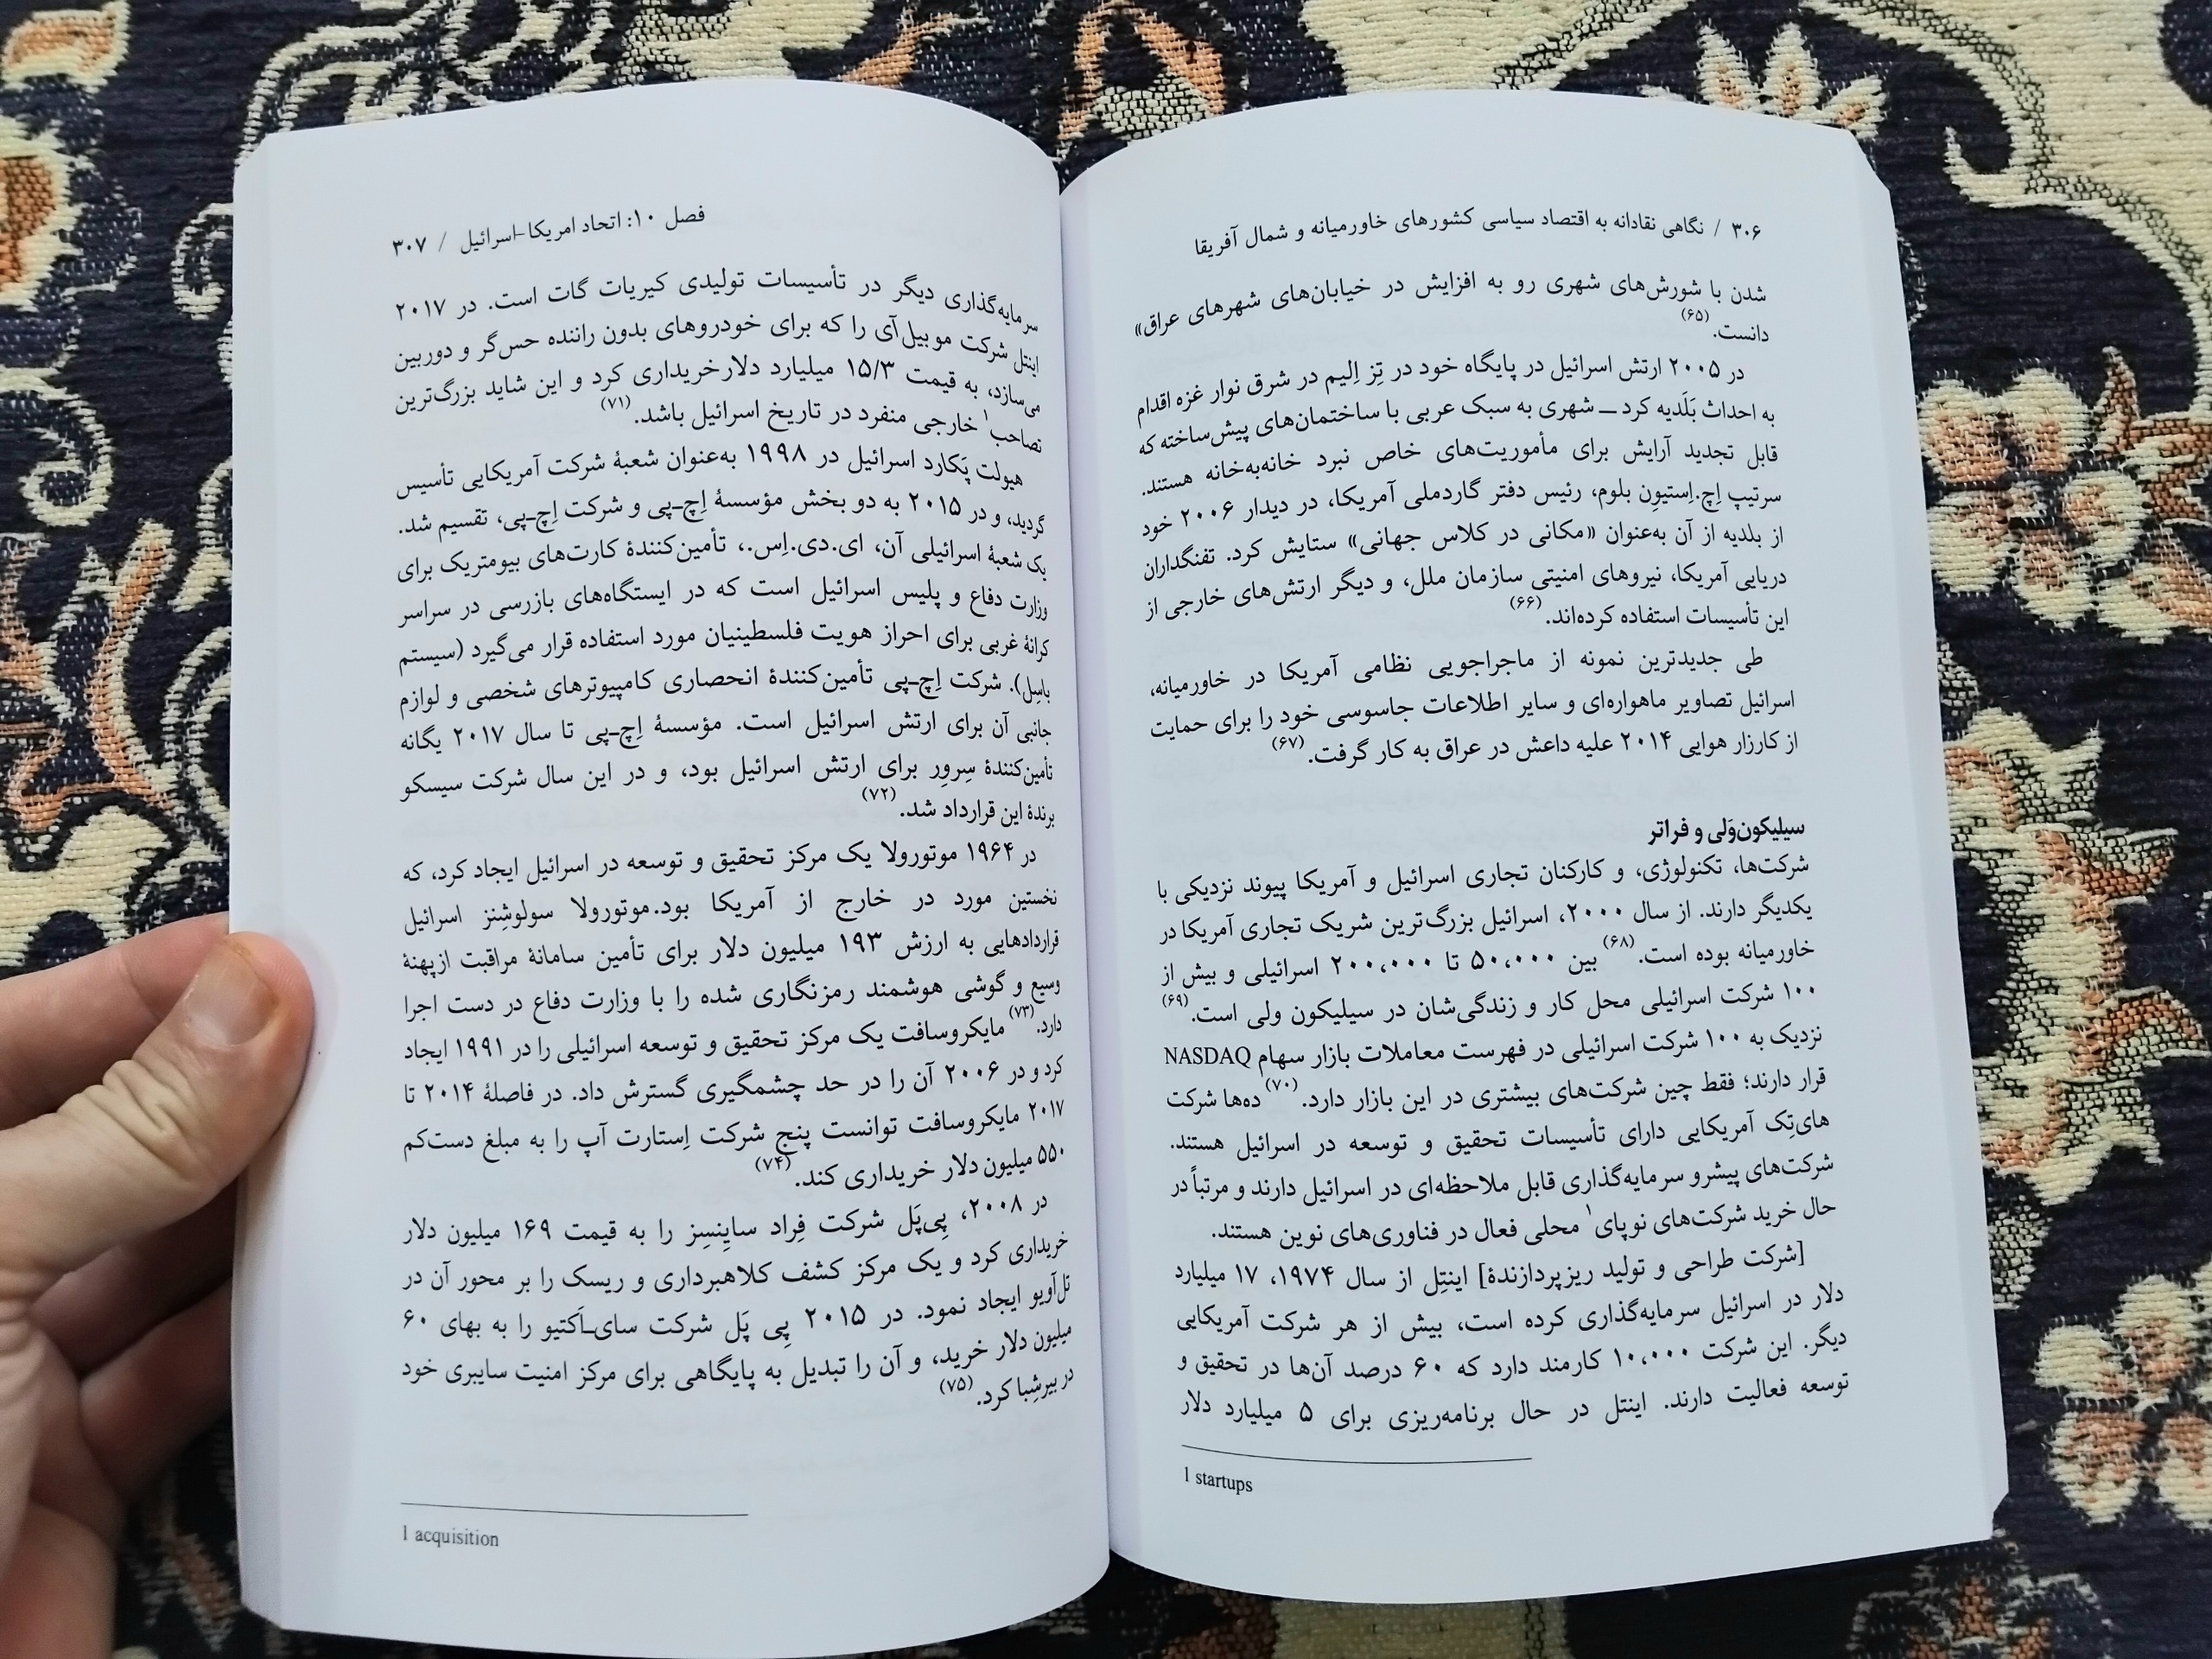 ۳۰۶ / نگاهی نقادانه به اقتصاد سیاسی کشورهای خاورمیانه و شمال آفریقا
شدن با شورش‌های شهری رو به افزایش در خیابان‌های شهرهای عراق»
دانست.(۶۵)
در ۲۰۰۵ ارتش اسرائیل در پایگاه خود در تِز اِلیم در شرق نوار غزه اقدام
به احداث بَلَدیه کرد ـــ شهری به سبک عربی با ساختمان‌های پیش‌ساخته که
قابل تجدید آرایش برای مأموریت‌های خاص نبرد خانه‌به‌خانه هستند.
سرتیپ اِچ.اِستیون بلوم، رئیس دفتر گاردملی آمریکا، در دیدار ۲۰۰۶ خود
از بلدیه از آن به‌عنوان «مکانی در کلاس جهانی» ستایش کرد. تفنگداران
دریایی آمریکا، نیروهای امنیتی سازمان ملل، و دیگر ارتش‌های خارجی از
این تأسیسات استفاده کرده‌اند.(۶۶)
طی جدیدترین نمونه از ماجراجویی نظامی آمریکا در خاورمیانه،
اسرائیل تصاویر ماهواره‌ای و سایر اطلاعات جاسوسی خود را برای حمایت
از کارزار هوایی ۲۰۱۴ علیه داعش در عراق به کار گرفت.(۶۷)
سیلیکون‌وَلی و فراتر
شرکت‌ها، تکنولوژی، و کارکنان تجاری اسرائیل و آمریکا پیوند نزدیکی با
یکدیگر دارند. از سال ۲۰۰۰، اسرائیل بزرگ‌ترین شریک تجاری آمریکا در
خاورمیانه بوده است.(۶۸) بین ۵۰،۰۰۰ تا ۲۰۰،۰۰۰ اسرائیلی و بیش از
۱۰۰ شرکت اسرائیلی محل کار و زندگی‌شان در سیلیکون ولی است.(۶۹)
نزدیک به ۱۰۰ شرکت اسرائیلی در فهرست معاملات بازار سهام NASDAQ
قرار دارند؛ فقط چین شرکت‌های بیشتری در این بازار دارد.(۷۰) ده‌ها شرکت
های‌تِک آمریکایی دارای تأسیسات تحقیق و توسعه در اسرائیل هستند.
شرکت‌های پیشرو سرمایه‌گذاری قابل ملاحظه‌ای در اسرائیل دارند و مرتباً در
حال خرید شرکت‌های نوپای۱ محلی فعال در فناوری‌های نوین هستند.
[شرکت طراحی و تولید ریزپردازندهٔ] اینتِل از سال ۱۹۷۴، ۱۷ میلیارد
دلار در اسرائیل سرمایه‌گذاری کرده است، بیش از هر شرکت آمریکایی
دیگر. این شرکت ۱۰،۰۰۰ کارمند دارد که ۶۰ درصد آن‌ها در تحقیق و
توسعه فعالیت دارند. اینتل در حال برنامه‌ریزی برای ۵ میلیارد دلار
1 startups
فصل ۱۰: اتحاد امریکا-اسرائیل / ۳۰۷
سرمایه‌گذاری دیگر در تأسیسات تولیدی کیریات گات است. در ۲۰۱۷
اینتل شرکت موبیل‌آی را که برای خودروهای بدون راننده حس‌گر و دوربین
می‌سازد، به قیمت ۱۵/۳ میلیارد دلارخریداری کرد و این شاید بزرگ‌ترین
تصاحب۱ خارجی منفرد در تاریخ اسرائیل باشد.(۷۱)
هیولت پَکارد اسرائیل در ۱۹۹۸ به‌عنوان شعبهٔ شرکت آمریکایی تأسیس
گردید، و در ۲۰۱۵ به دو بخش مؤسسهٔ اِچ‌ـ‌پی و شرکت اِچ‌ـ‌پی، تقسیم شد.
یک شعبهٔ اسرائیلی آن، ای.دی.اِس.، تأمین‌کنندهٔ کارت‌های بیومتریک برای
وزارت دفاع و پلیس اسرائیل است که در ایستگاه‌های بازرسی در سراسر
کرانهٔ غربی برای احراز هویت فلسطینیان مورد استفاده قرار می‌گیرد (سیستم
باسِل). شرکت اِچ‌ـ‌پی تأمین‌کنندهٔ انحصاری کامپیوترهای شخصی و لوازم
جانبی آن برای ارتش اسرائیل است. مؤسسهٔ اِچ‌ـ‌پی تا سال ۲۰۱۷ یگانه
تأمین‌کنندهٔ سِروِر برای ارتش اسرائیل بود، و در این سال شرکت سیسکو
برندهٔ این قرارداد شد.(۷۲)
در ۱۹۶۴ موتورولا یک مرکز تحقیق و توسعه در اسرائیل ایجاد کرد، که
نخستین مورد در خارج از آمریکا بود.موتورولا سولوشِنز اسرائیل
قراردادهایی به ارزش ۱۹۳ میلیون دلار برای تأمین سامانهٔ مراقبت ازپهنهٔ
وسیع و گوشی هوشمند رمزنگاری شده را با وزارت دفاع در دست اجرا
دارد.(۷۳) مایکروسافت یک مرکز تحقیق و توسعه اسرائیلی را در ۱۹۹۱ ایجاد
کرد و در ۲۰۰۶ آن را در حد چشمگیری گسترش داد. در فاصلهٔ ۲۰۱۴ تا
۲۰۱۷ مایکروسافت توانست پنج شرکت اِستارت آپ را به مبلغ دست‌کم
۵۵۰ میلیون دلار خریداری کند.(۷۴)
در ۲۰۰۸، پِی‌پَل شرکت فِراد سایِنسِز را به قیمت ۱۶۹ میلیون دلار
خریداری کرد و یک مرکز کشف کلاهبرداری و ریسک را بر محور آن در
تل‌آویو ایجاد نمود. در ۲۰۱۵ پِی پَل شرکت سای‌ـ‌اَکتیو را به بهای ۶۰
میلیون دلار خرید، و آن را تبدیل به پایگاهی برای مرکز امنیت سایبری خود
در بیرشِبا کرد.(۷۵)
1 acquisition